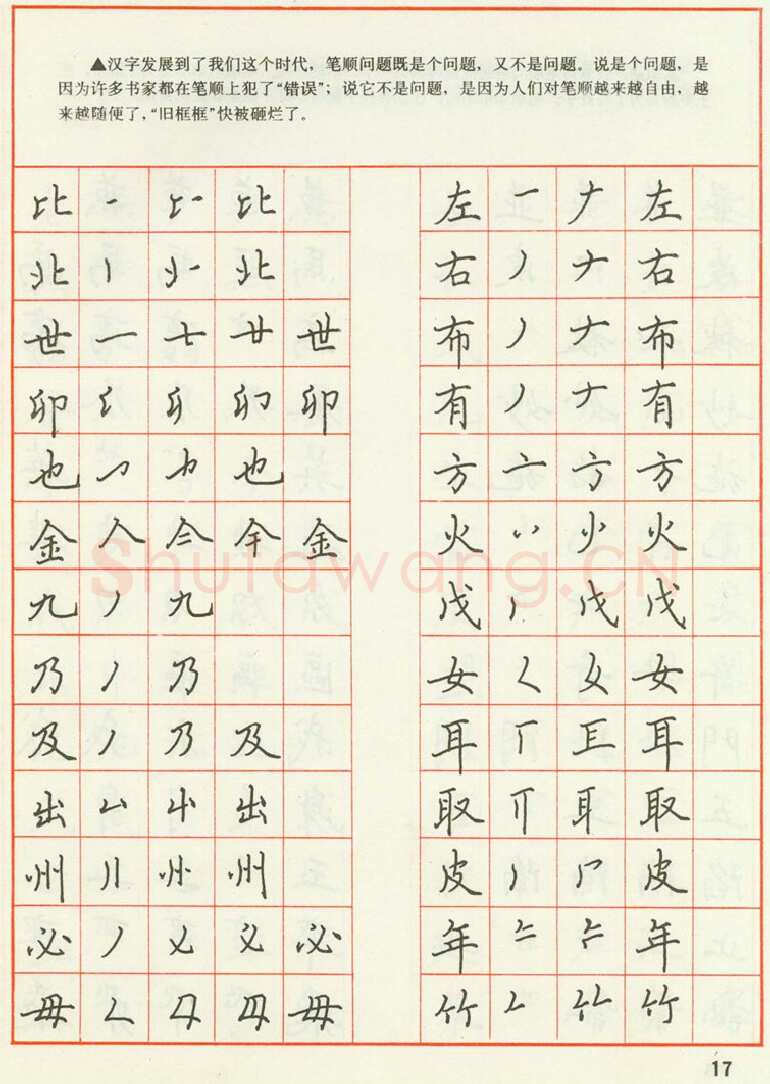 ▲汉字发展到了我们这个时代，笔顺问题既是个问题，又不是问题。说是个问题，是
因为许多书家都在笔顺上犯了“错误”；说它不是问题，是因为人们对笔顺越来越自由，越
来越随便了，“旧框框”快被砸烂了。
比 比 左 一 𠂇 左
北 丿 北 右 丿 𠂇 右
世 一 七 廿 世 布 丿 𠂇 布
卯 卯 有 丿 𠂇 有
也 也 方 亠 方 方
金 人 亼 金 火 火 火
九 丿 九 戊 丿 戊 戊
乃 丿 乃 女 女 女
及 丿 乃 及 耳 耳
出 出 取 耳 取
州 州 皮 丿 皮
必 丿 必 年 年
毋 毋 竹 竹 竹
Shufawang.CN
17